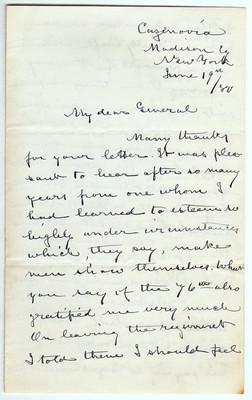 Cazenovia
Madison Co
New York
June 19th/80
My dear General
Many thanks
for your letter. It was plea
sant to hear after so many
years from one whom I
had learned to esteem so
highly under circumstances
which, they say, make
men show themselves. What
you say of the 76th also
gratified me very much
On leaving the regiment
I told them I should feel